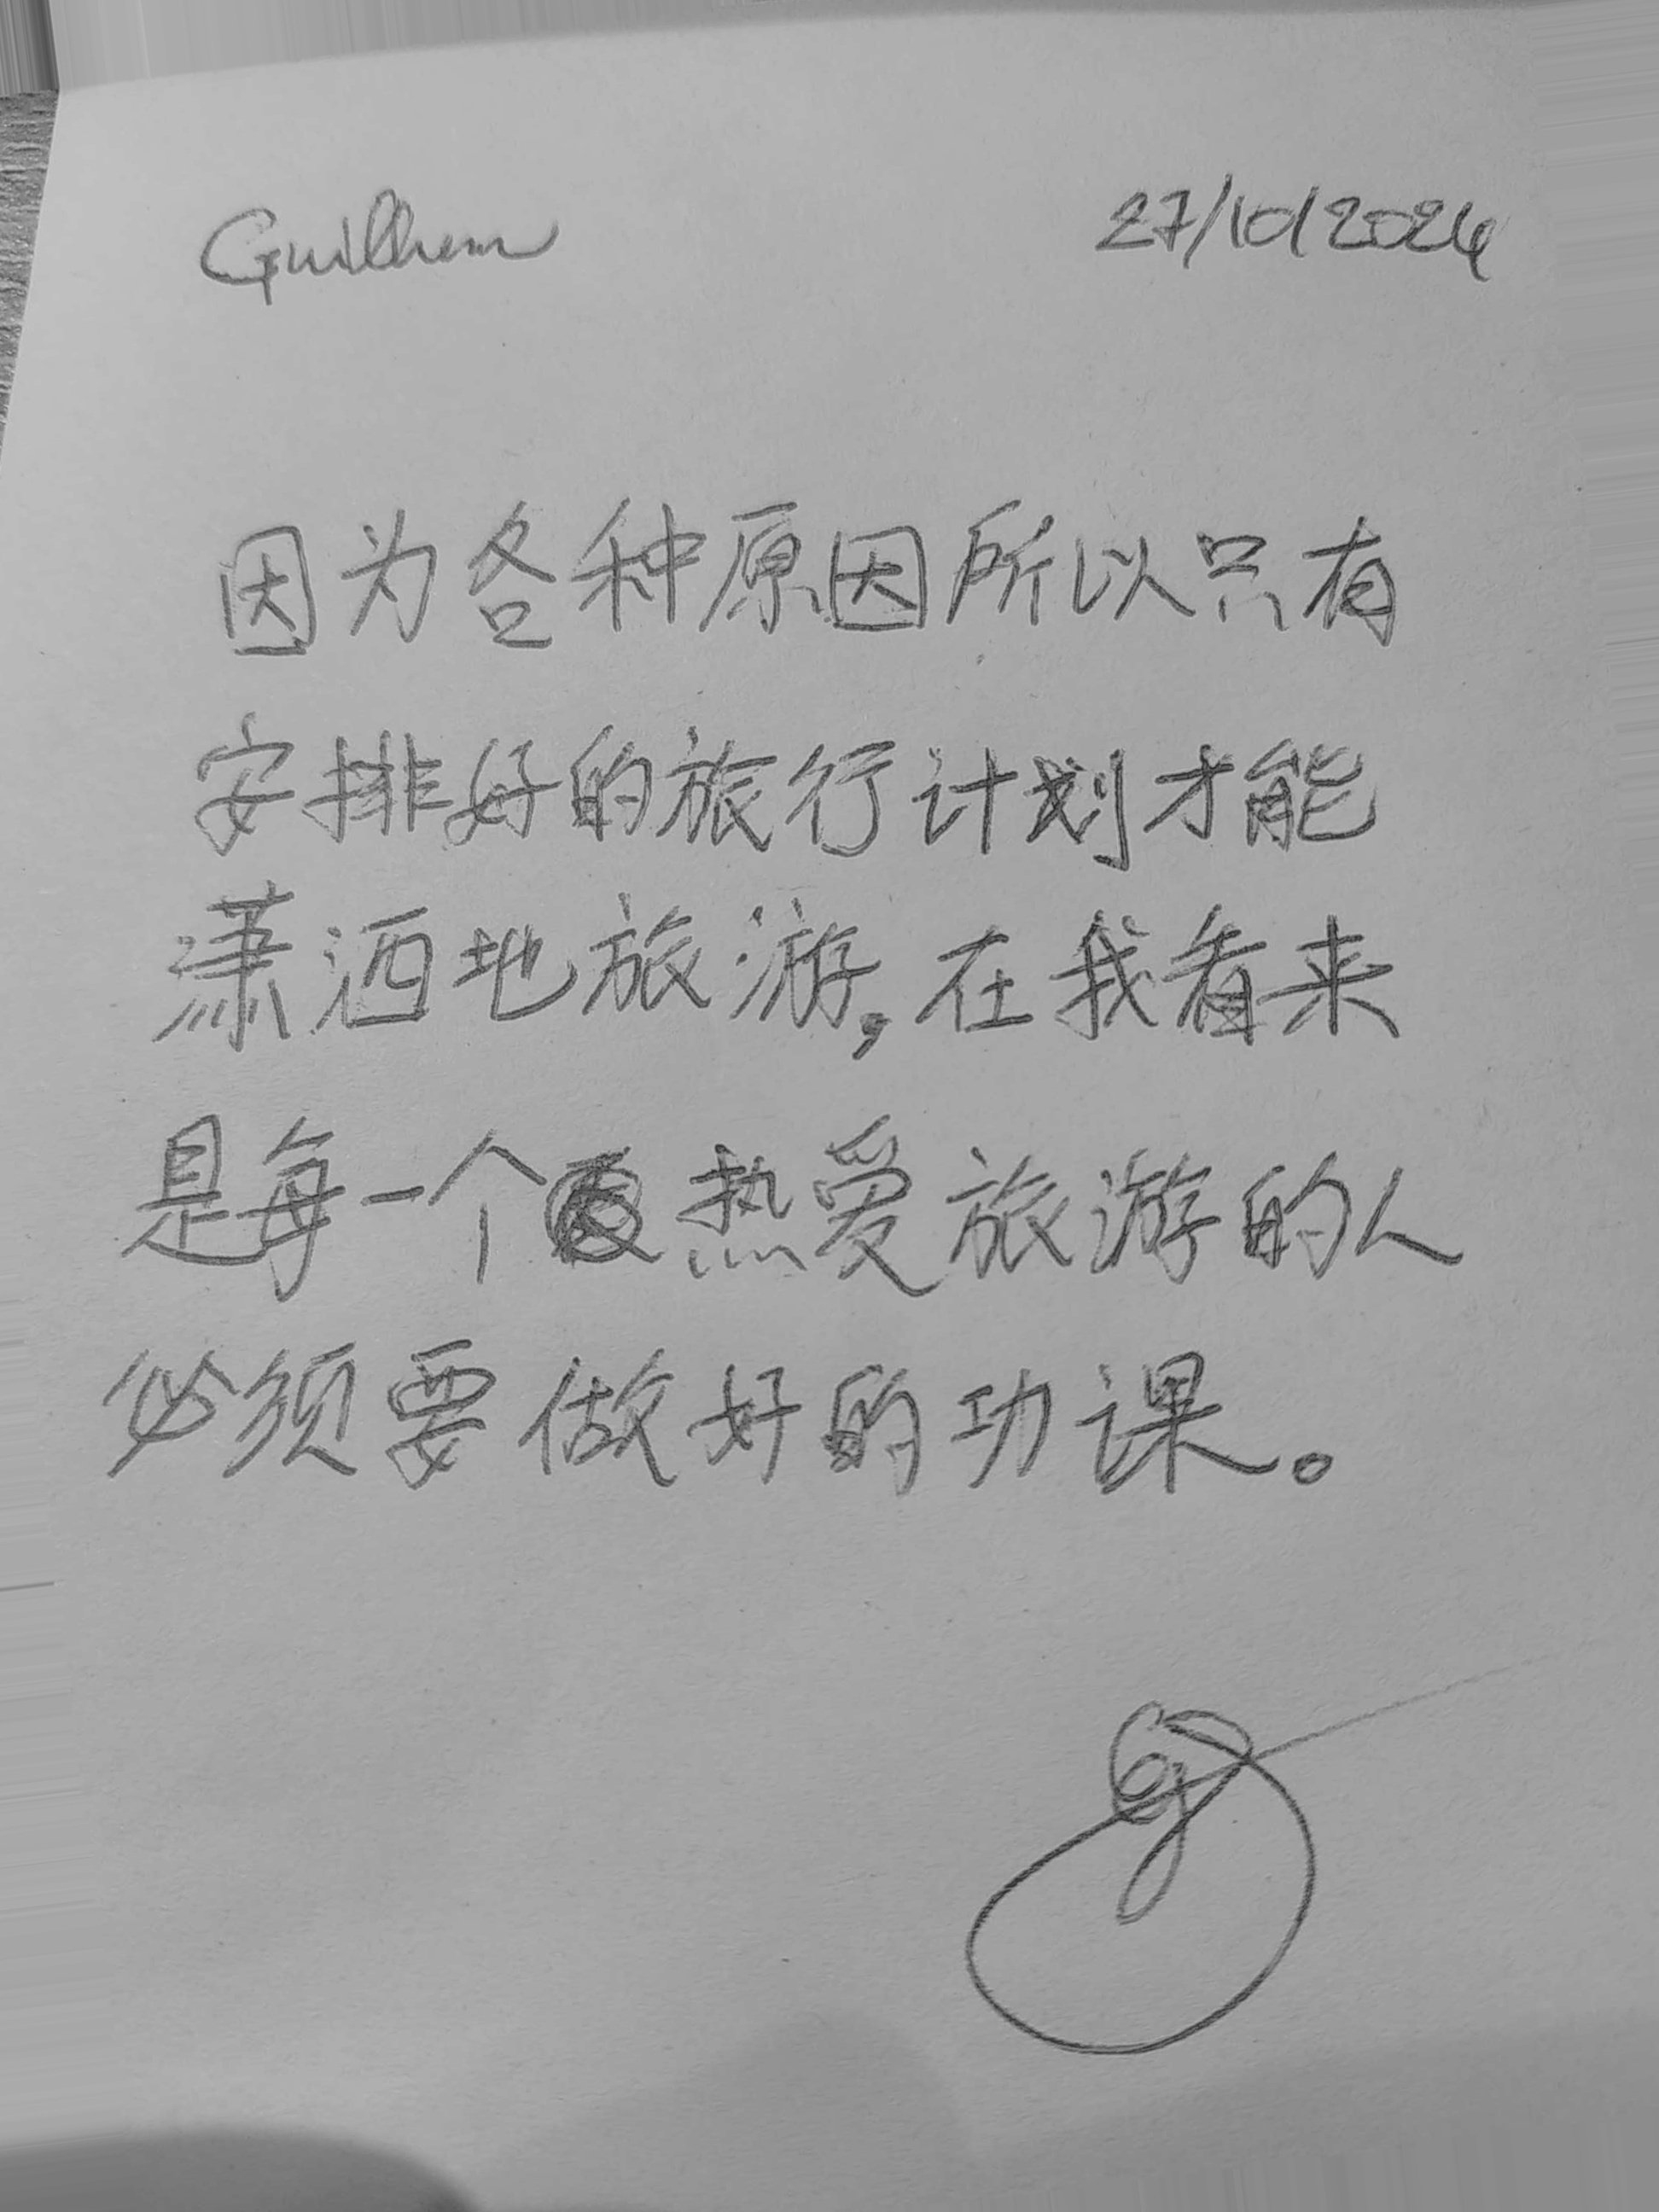 Guilhem 27/10/2024
因为各种原因所以只有
安排好的旅行计划才能
潇洒地旅游，在我看来
是每一个热爱旅游的人
必须要做好的功课。